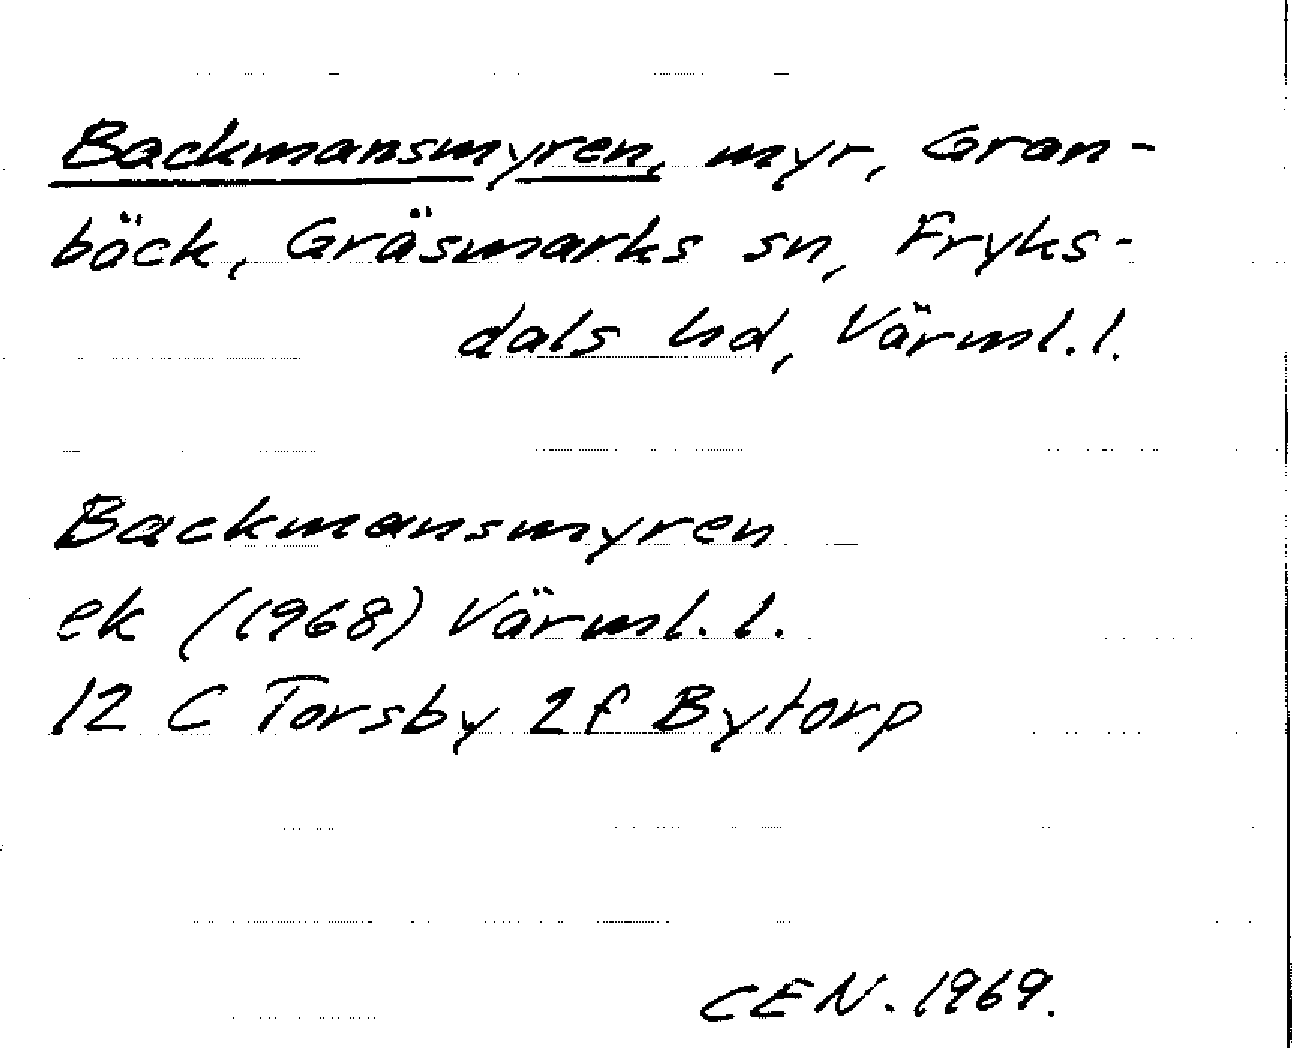 Backmansmyren, myr, Gran-
bäck, Gräsmarks sn, Fryks-
dals hd, Värml. l.
Backmansmyren
ek (1968) Värml. l.
12 C Torsby 2f Bytorp
CEN. 1969.